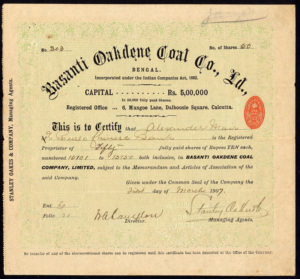 No. 303
No. of Shares 50
Basanti Oakdene Coal Co., Ld.,
BENGAL.
Incorporated under the Indian Companies Act, 1882.
CAPITAL Rs. 5,00,000
In 50,000 fully paid Shares.
Registered Office 6, Mangoe Lane, Dalhousie Square, Calcutta.
This is to Certify that Alexander
is the Registered
Proprietor of Fifty fully paid shares of Rupees TEN each,
numbered 10101 to 10150 both inclusive, in BASANTI OAKDENE COAL
COMPANY, LIMITED, subject to the Memorandum and Articles of Association of the
said Company.
Given under the Common Seal of the Company
this First day of March 1907.
Director.
Stanley Oakes
Managing Agents.
STANLEY OAKES & COMPANY, Managing Agents.
No transfer of any of the abovementioned shares can be registered until this certificate has been deposited at the Office of the Company.